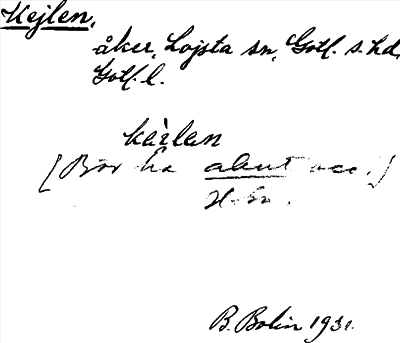 Kejlen,
åker, Lojsta sn, Gotl. s. hd,
Gotl. l.
kæ̀ilen
[Bör ha akut acc.]
H. Gn.
B. Bolin 1931.